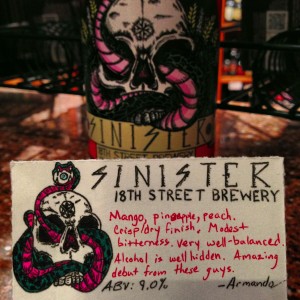 SINISTER
18TH STREET BREWERY
SINISTER
18TH STREET BREWERY
Mango, pineapple, peach.
Crisp/dry finish. Modest
bitterness. Very well-balanced.
Alcohol is well hidden. Amazing
debut from these guys.
ABV: 9.0% -Armando